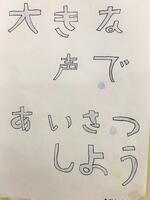 大きな
声で
あいさつ
しよう